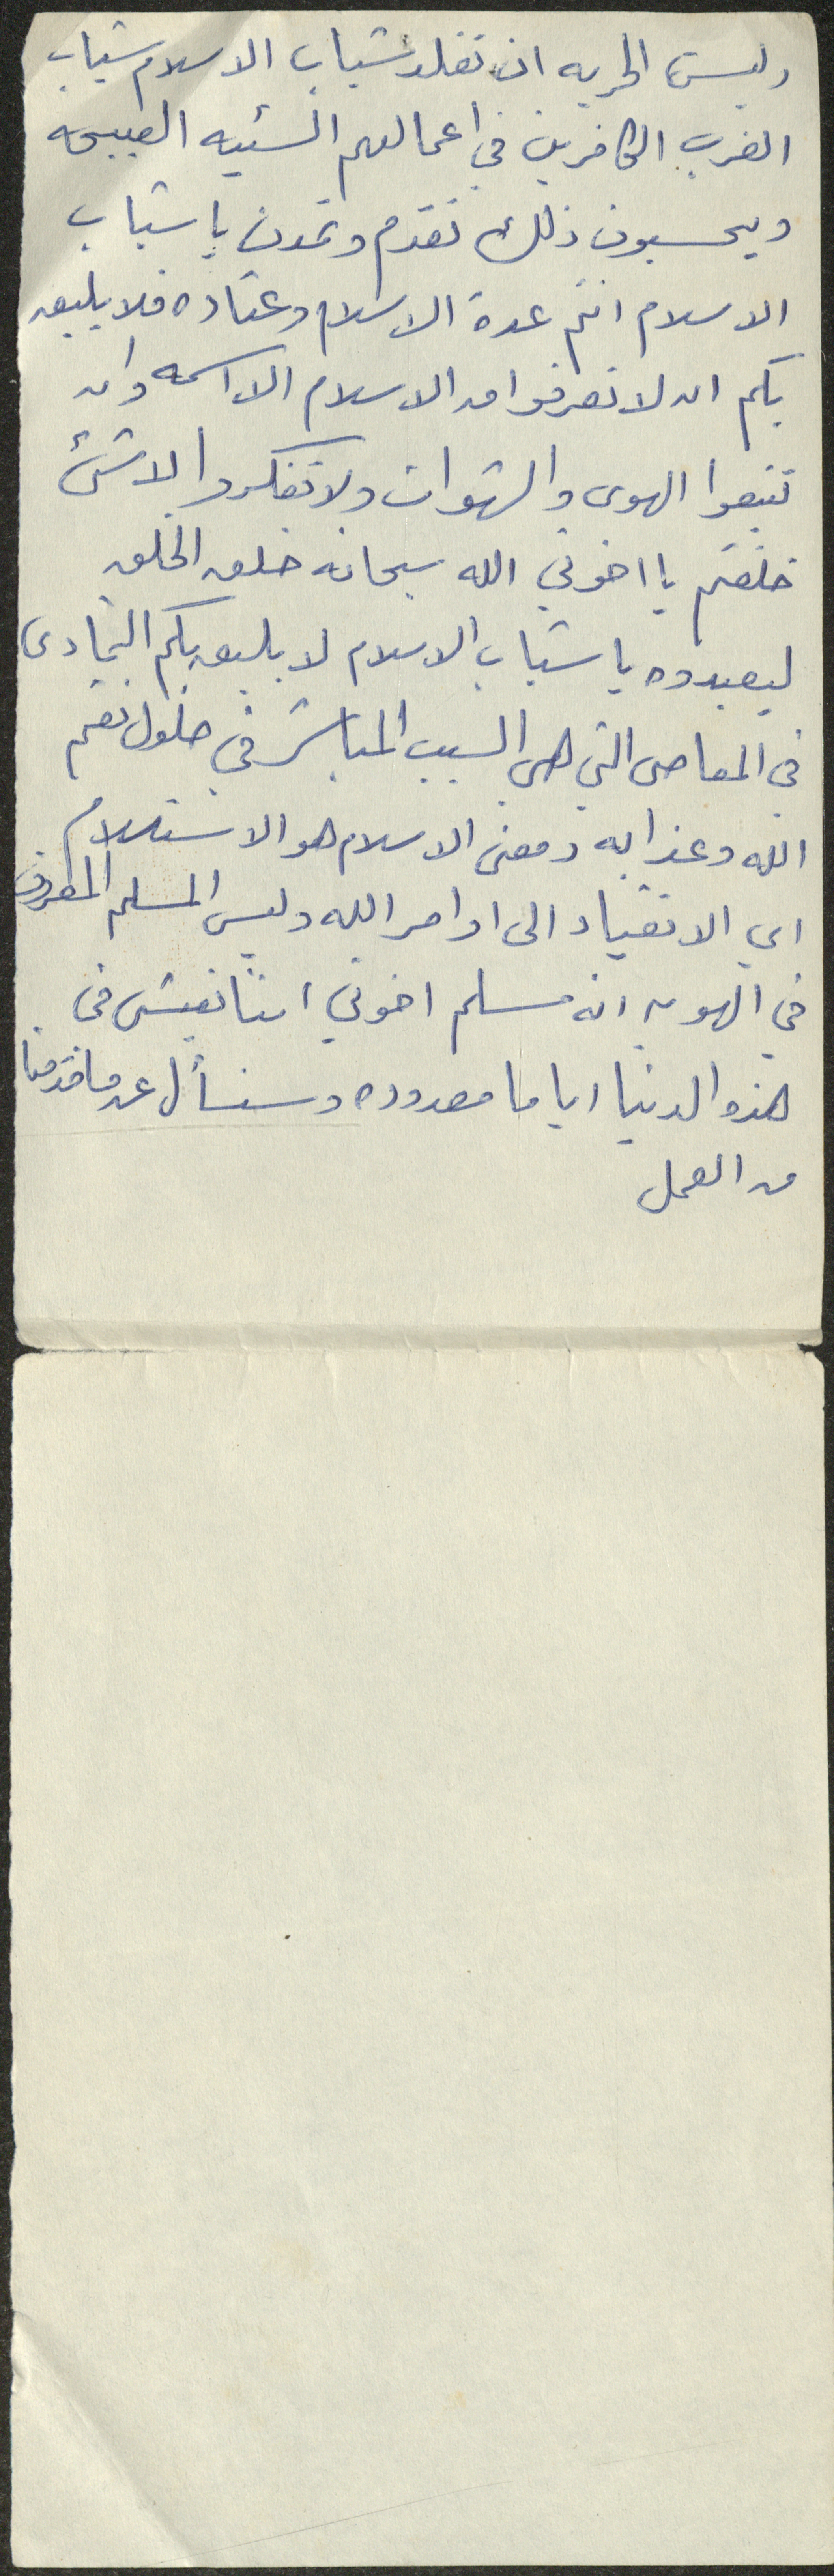 وليست الحريه ان تقلد شباب الاسلام شباب
الغرب الكافرين في اعمالهم السئيه القبيحه
ويحسبون ذلك تقدم وتمدن يا شباب
الاسلام انتم عدة الاسلام وعتاده فلا يليق
بكم ان لا تعرفوا من الاسلام الا اسمه وان
تتبعوا الهوى والشهوات ولا تفكروا لاشئ
خلقتم يا اخوتي الله سبحانه خلق الخلق
ليعبدوه يا شباب الاسلام لا يليق بكم التمادى
في المعاصى التي هى السبب المباشر في حلول نقم
الله وعذابه ومعنى الاسلام هو الاستسلام
اي الانقياد الى اوامر الله وليس المسلم المعروف
في الهويه انه مسلم اخوتي اننا نعيش في
هذه الدنيا اياما معدوده وسنسأل عن ما قدمنا
من العمل